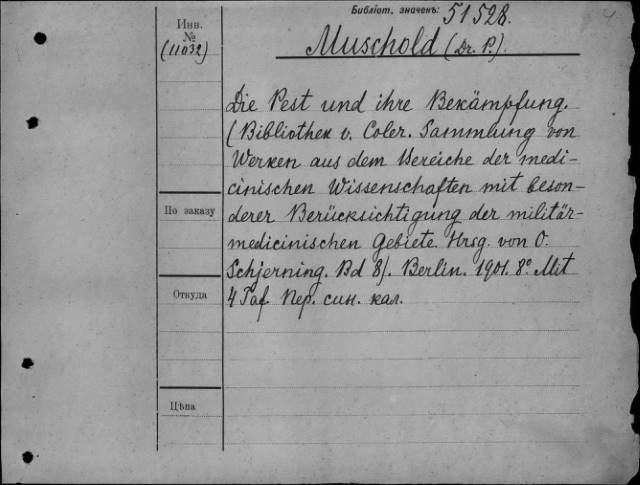 Библіот. значекъ: 51528.
Инв.
№
(11032)
Muschold (Dr. P.).
Die Pest und ihre Bekämpfung.
(Bibliothek v. Coler. Sammlung von
Werken aus dem Bereiche der medi-
cinischen Wissenschaften mit beson-
derer Berücksichtigung der militär-
medicinischen Gebiete. Hrsg. von O.
Schjerning. Bd 8). Berlin. 1901. 8º. Mit
4 Taf. Пер. син. кал.
По заказу
Откуда
Цѣна